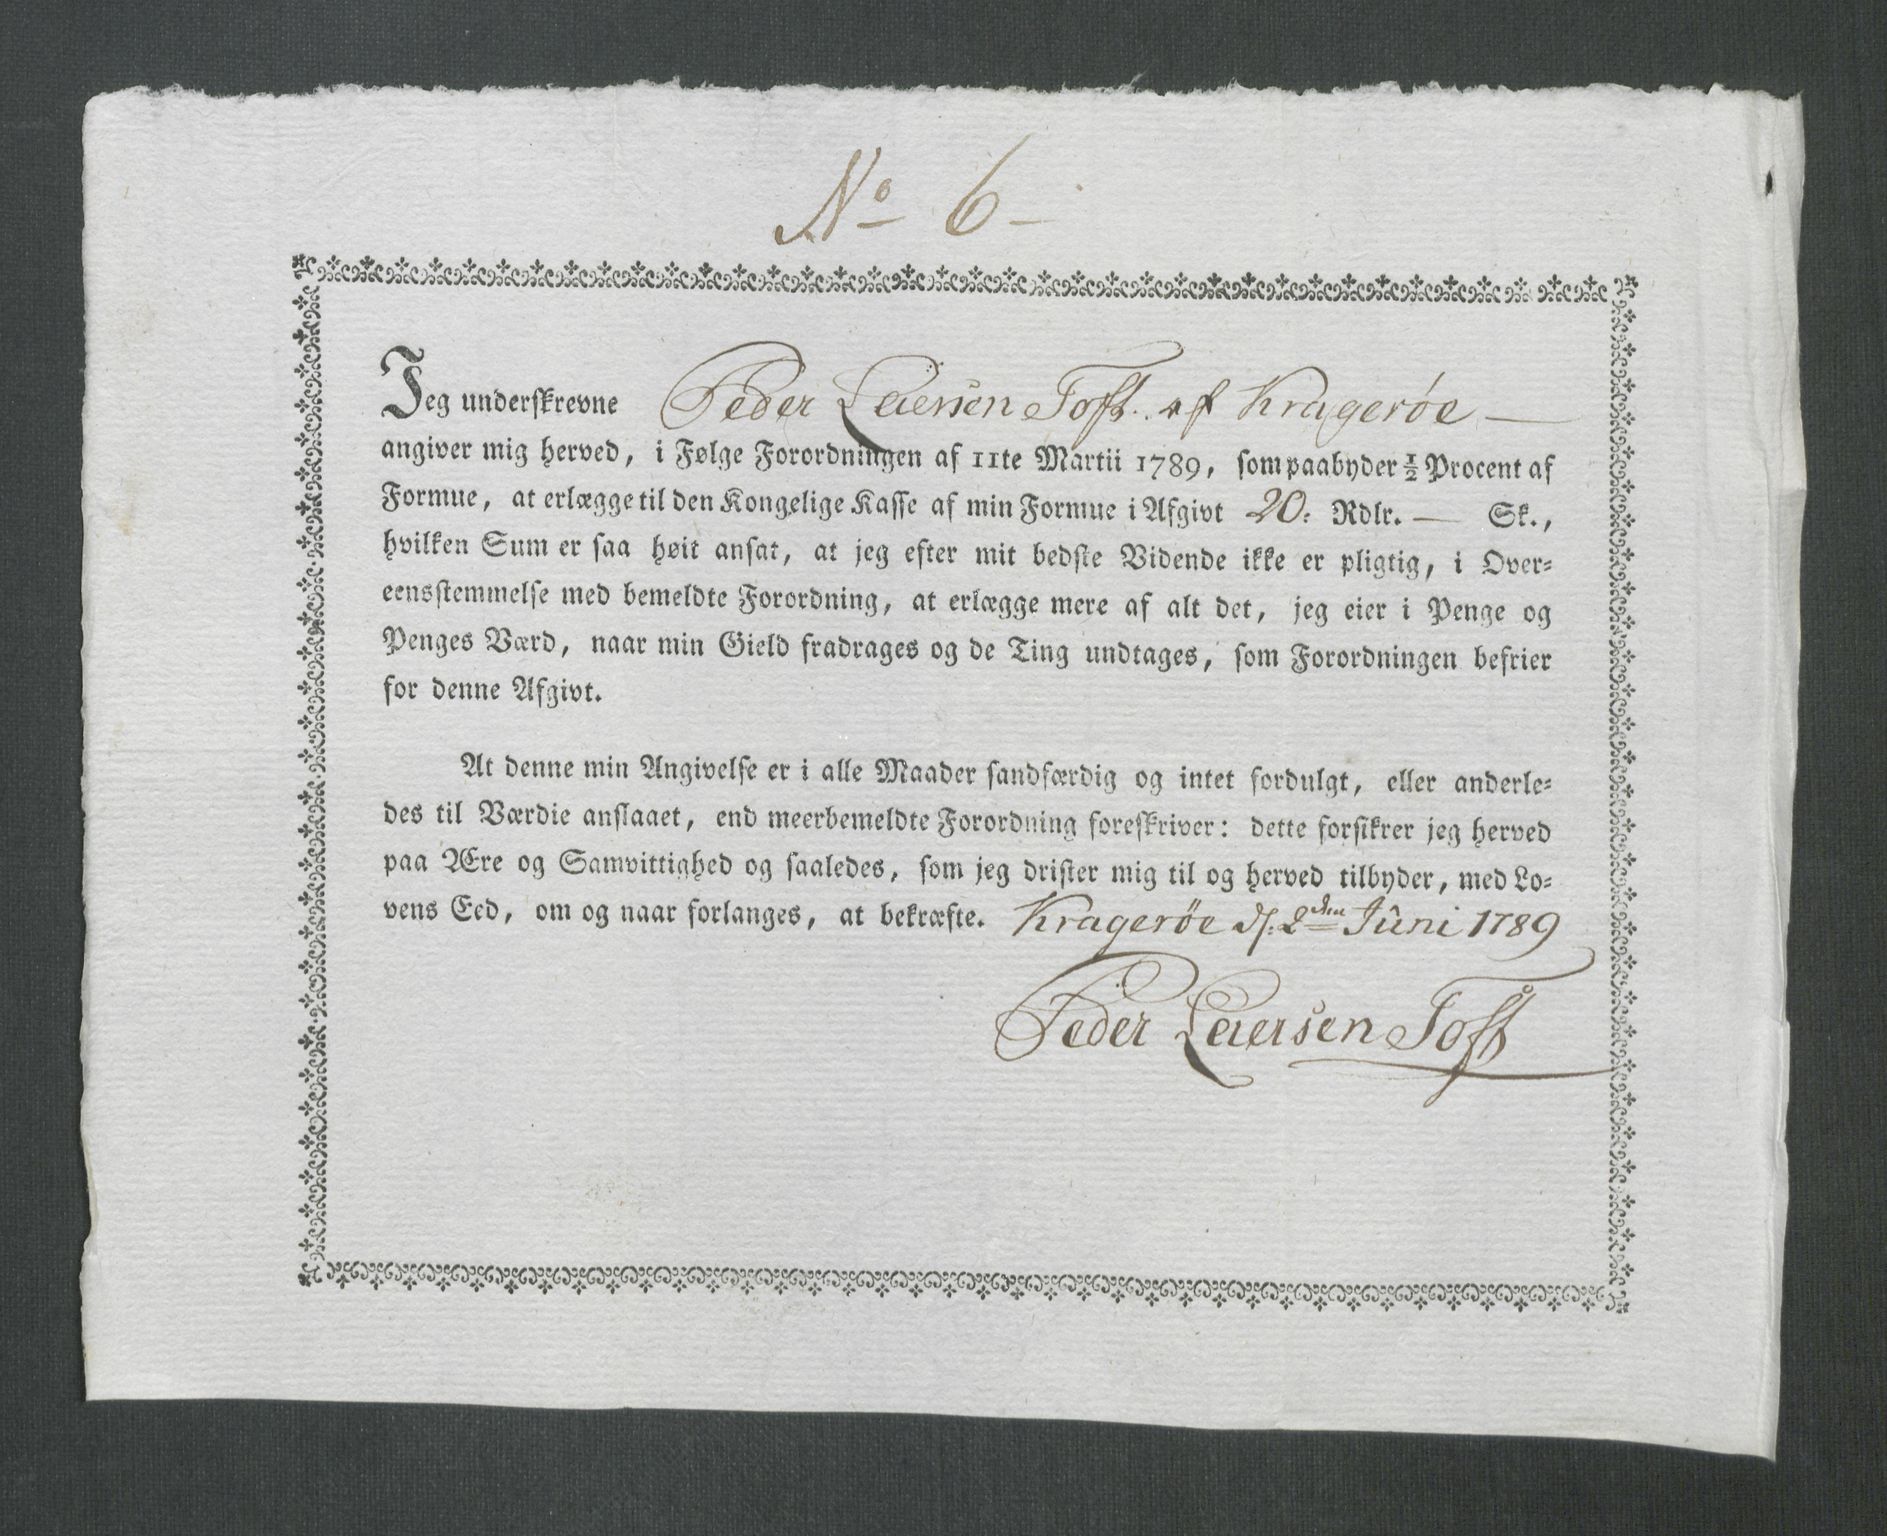 No 6
Jeg underskrevne Peder Leiersen Toft. af Kragerøe —
angiver mig herved, i Følge Forordningen af 11te Martii 1789, som paabyder ½ Procent af
Formue, at erlægge til den Kongelige Kasse af min Formue i Afgivt 20: Rdlr. — Sk.,
hvilken Sum er saa høit ansat, at jeg efter mit bedste Vidende ikke er pligtig, i Over-
eensstemmelse med bemeldte Forordning, at erlægge mere af alt det, jeg eier i Penge og
Penges Værd, naar min Gield fradrages og de Ting undtages, som Forordningen befrier
for denne Afgivt.
At denne min Angivelse er i alle Maader sandfærdig og intet fordulgt, eller anderle-
des til Værdie anslaaet, end meerbemeldte Forordning foreskriver: dette forsikrer jeg herved
paa Ære og Samvittighed og saaledes, som jeg drister mig til og herved tilbyder, med Lo-
vens Eed, om og naar forlanges, at bekræfte. Kragerøe d: 2den Juni 1789
Peder Leiersen Toft